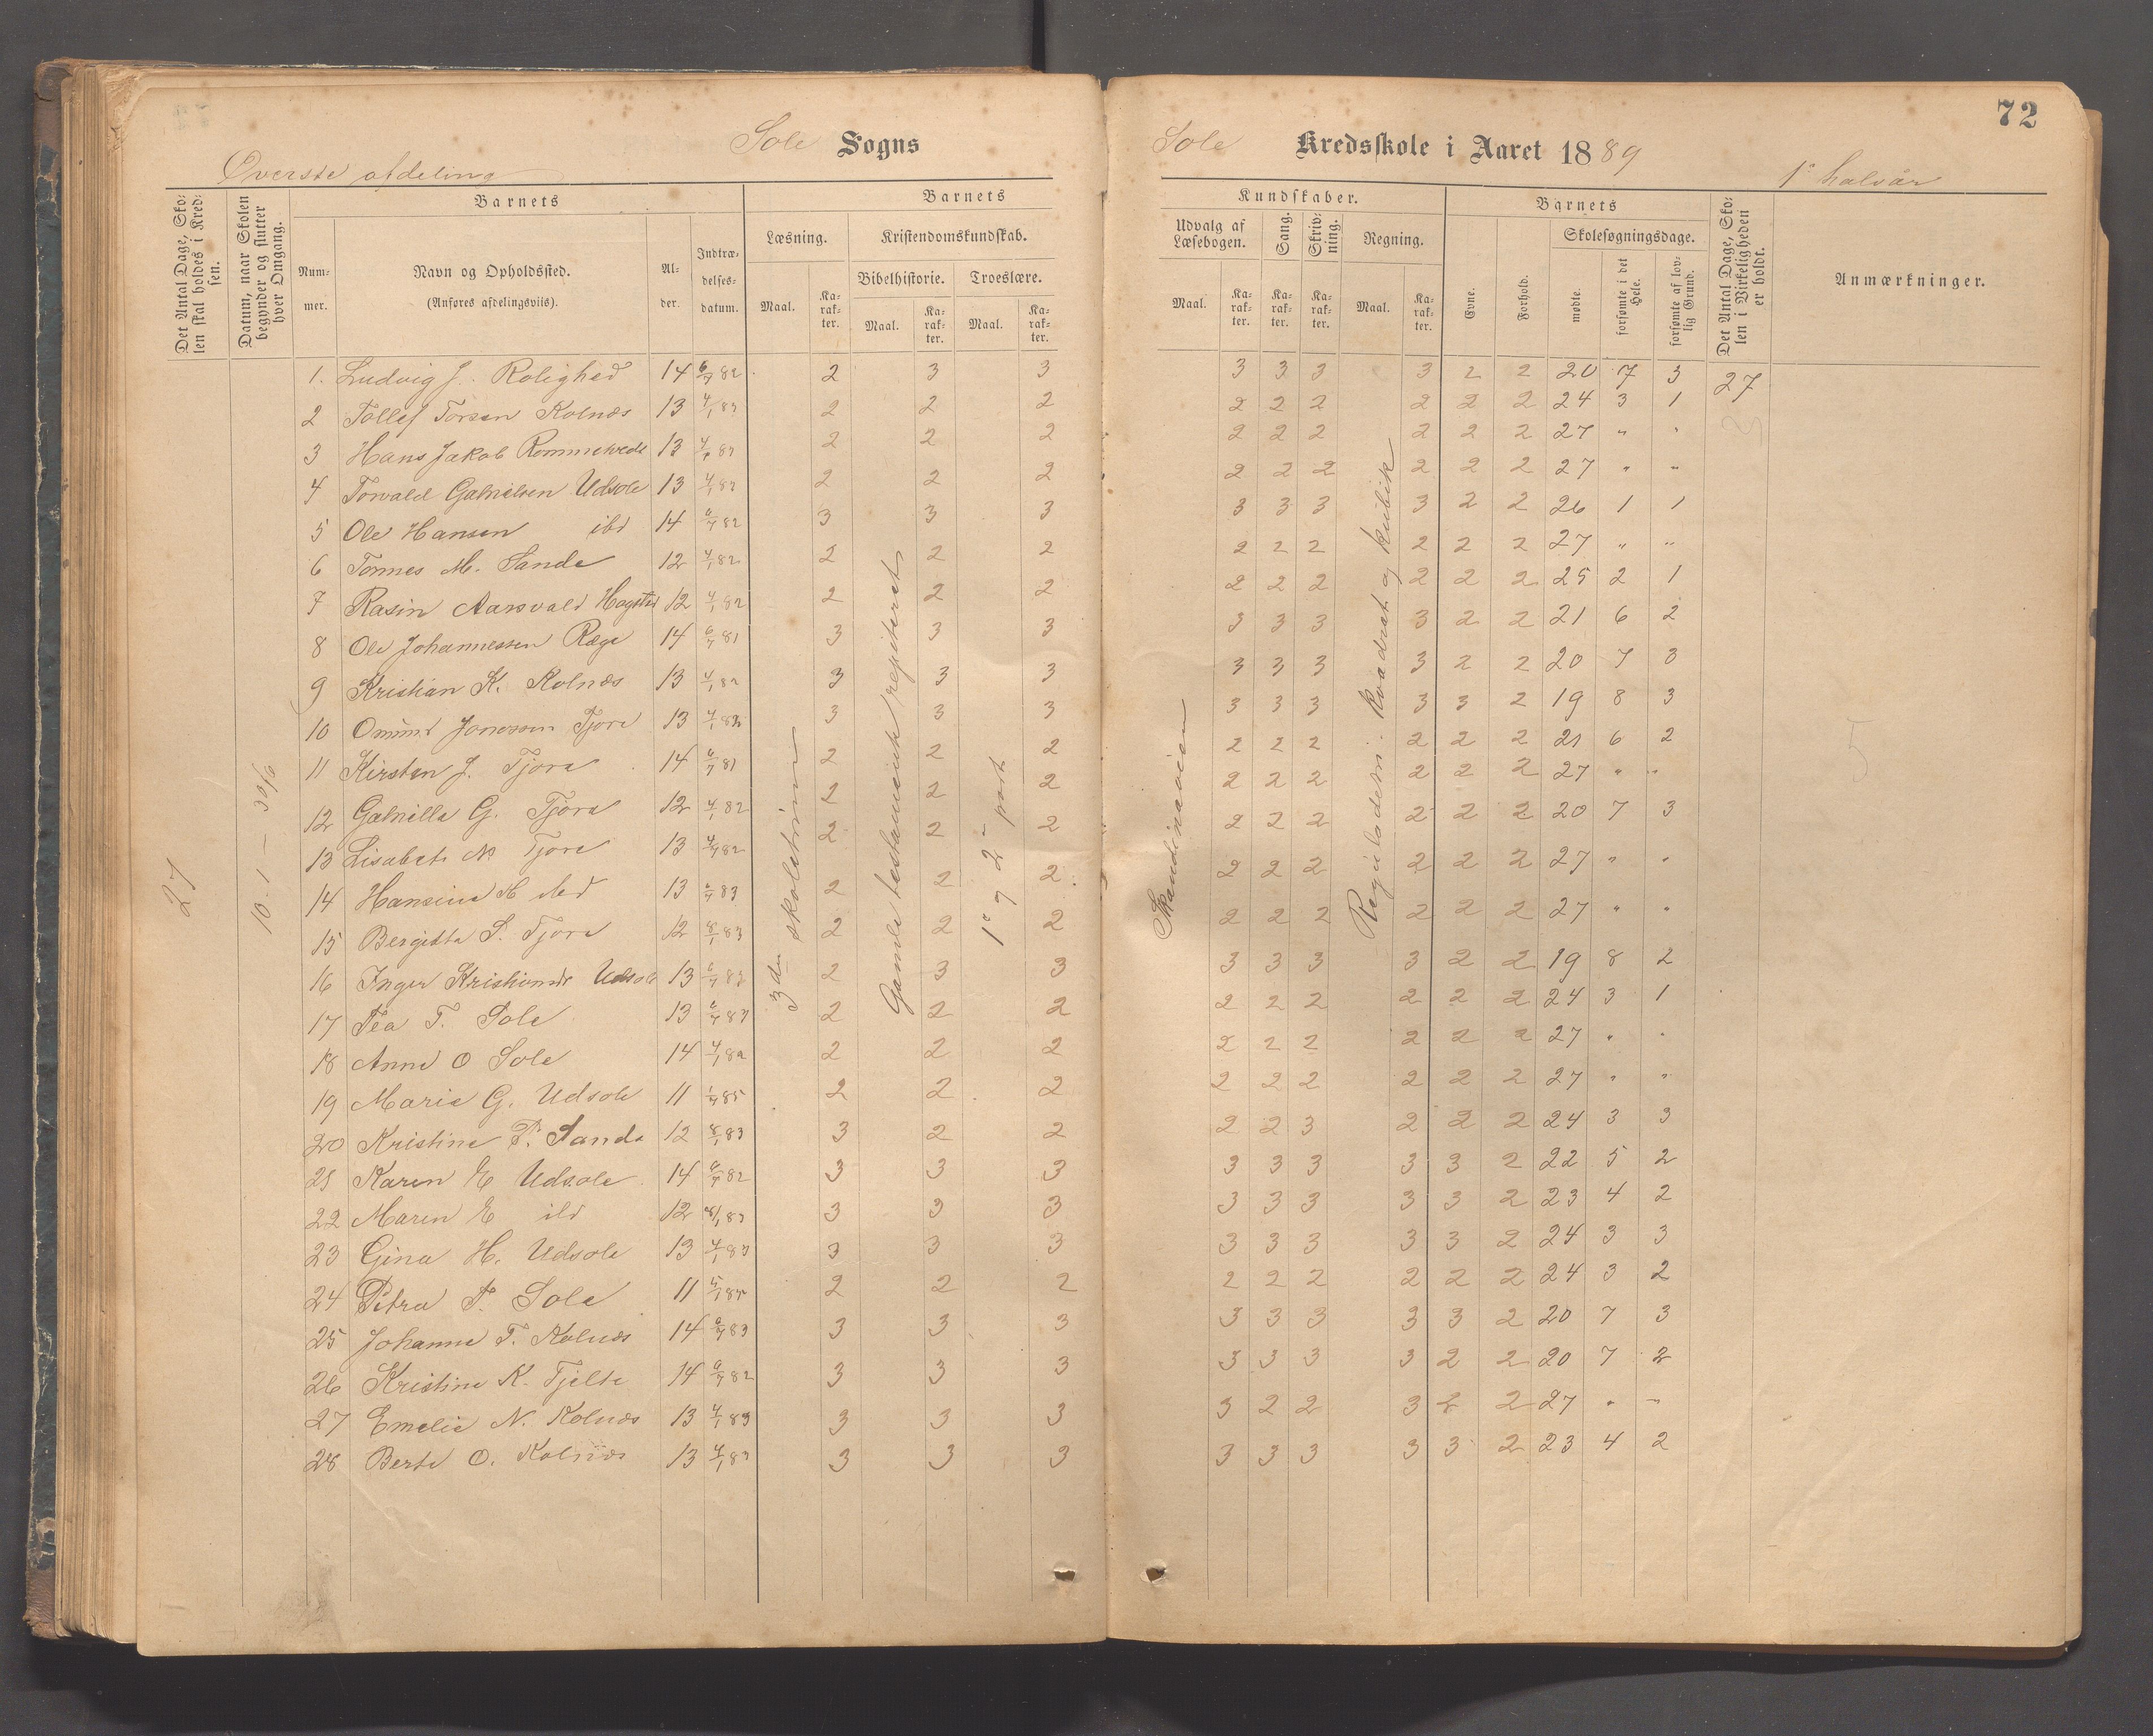 72
Sole Sogns
Sole Kredsskole i Aaret 1889
Överste afdeling
1e halvår
Det Antal Dage, Skolen skal holdes i Kredsen.
Datum, naar Skolen begynder og slutter hver Omgang.
Barnets
Nummer.
Navn og Opholdssted.
(Anføres afdelingsviis).
Alder.
Indtrædelsesdatum.
Barnets
Kundskaber.
Læsning.
Kristendomskundskab.
Bibelhistorie.
Troeslære.
Maal.
Karakter.
Maal.
Karakter.
Maal.
Karakter.
Udvalg af Læsebogen.
Sang.
Skrivning.
Regning.
Maal.
Karakter.
Karakter.
Karakter.
Maal.
Karakter.
Barnets
Evne.
Forhold.
Skolesøgningsdage.
mødte.
forsømte i det Hele.
forsømte af lovlig Grund.
Det Antal Dage, Skolen i Virkeligheden er holdt.
Anmærkninger.
27
10/1 – 30/6
3die skoletrin
Gamle testamente repeteret
1e og 2e part
Skandinavien
Reguladetri. Kvadrat og kubik
1. Ludvig J. Rolighed 14 6/7 82 2 3 3 3 3 3 3 2 2 20 7 3 27
2 Tollef Torsen Kolnæs 13 4/1 83 2 2 2 2 2 2 2 2 2 24 3 1
3 Hans Jakob 13 2 2 2 2 2 2 2 2 2 27 " "
4 Torvald Gabrielsen Udsole 13 4/1 83 2 2 2 2 2 2 2 2 2 27 " "
5 Ole Hansen ibd 14 6/7 82 3 3 3 3 3 3 3 2 2 26 1 1
6 Tønnes M. Sande 12 4/1 82 2 2 2 2 2 2 2 2 2 27 " "
7 Rasin Aarsvald 12 4/1 82 2 2 2 2 2 2 2 2 2 25 2 1
8 Ole Johannessen Ræge 14 6/7 81 3 3 3 3 3 3 3 2 2 21 6 2
9 Kristian K. Kolnæs 13 4/1 82 3 3 3 3 3 3 3 2 2 20 7 3
10 Omund Jonassen Tjora 13 4/1 82 3 3 3 3 3 3 3 3 2 19 8 3
11 Kirsten J. Tjora 14 6/7 81 2 2 2 2 2 2 2 2 2 21 6 2
12 Gabriella G. Tjora 12 4/1 82 2 2 2 2 2 2 2 2 2 27 " "
13 Lisabet N Tjora 13 82 2 2 2 2 2 2 2 2 2 20 7 3
14 Hansine 13 6/7 83 2 2 2 2 2 2 2 2 2 27 " "
15 Bergitta S. Tjora 12 8/1 83 2 2 2 2 2 2 2 2 2 27 " "
16 Inger Udsole 13 2 3 3 3 3 3 3 2 2 19 8 2
17 Tea T. Sole 13 6/7 83 2 2 2 2 2 2 2 2 2 24 3 1
18 Anne O Sole 14 4/1 82 2 2 2 2 2 2 2 2 2 27 " "
19 Marie G. Udsole 11 1/7 85 2 2 2 2 2 2 2 2 2 27 " "
20 Kristine P. Sande 12 8/1 83 3 2 2 2 2 3 2 2 2 24 3 3
21 Karen E Udsole 14 6/7 82 3 3 3 3 3 3 3 3 2 22 5 2
22 Maren E ibd 12 3 3 3 3 3 3 3 3 2 23 4 2
23 Gina H. Udsole 13 4/1 83 3 3 3 3 3 3 3 3 2 24 3 3
24 Petra T. Sole 11 5/1 85 2 2 2 2 2 2 2 2 2 24 3 2
25 Johanne T. Kolnæs 14 6/7 83 3 3 3 3 3 3 3 3 2 20 7 3
26 Kristine K. Tjelte 14 6/7 82 3 3 3 3 3 3 3 2 2 20 7 2
27 Emelie N. Kolnæs 13 4/1 83 3 3 3 3 2 2 3 2 2 27 " "
28 Berte O. Kolnæs 13 4/1 83 3 3 3 3 3 3 3 3 2 23 4 2
5